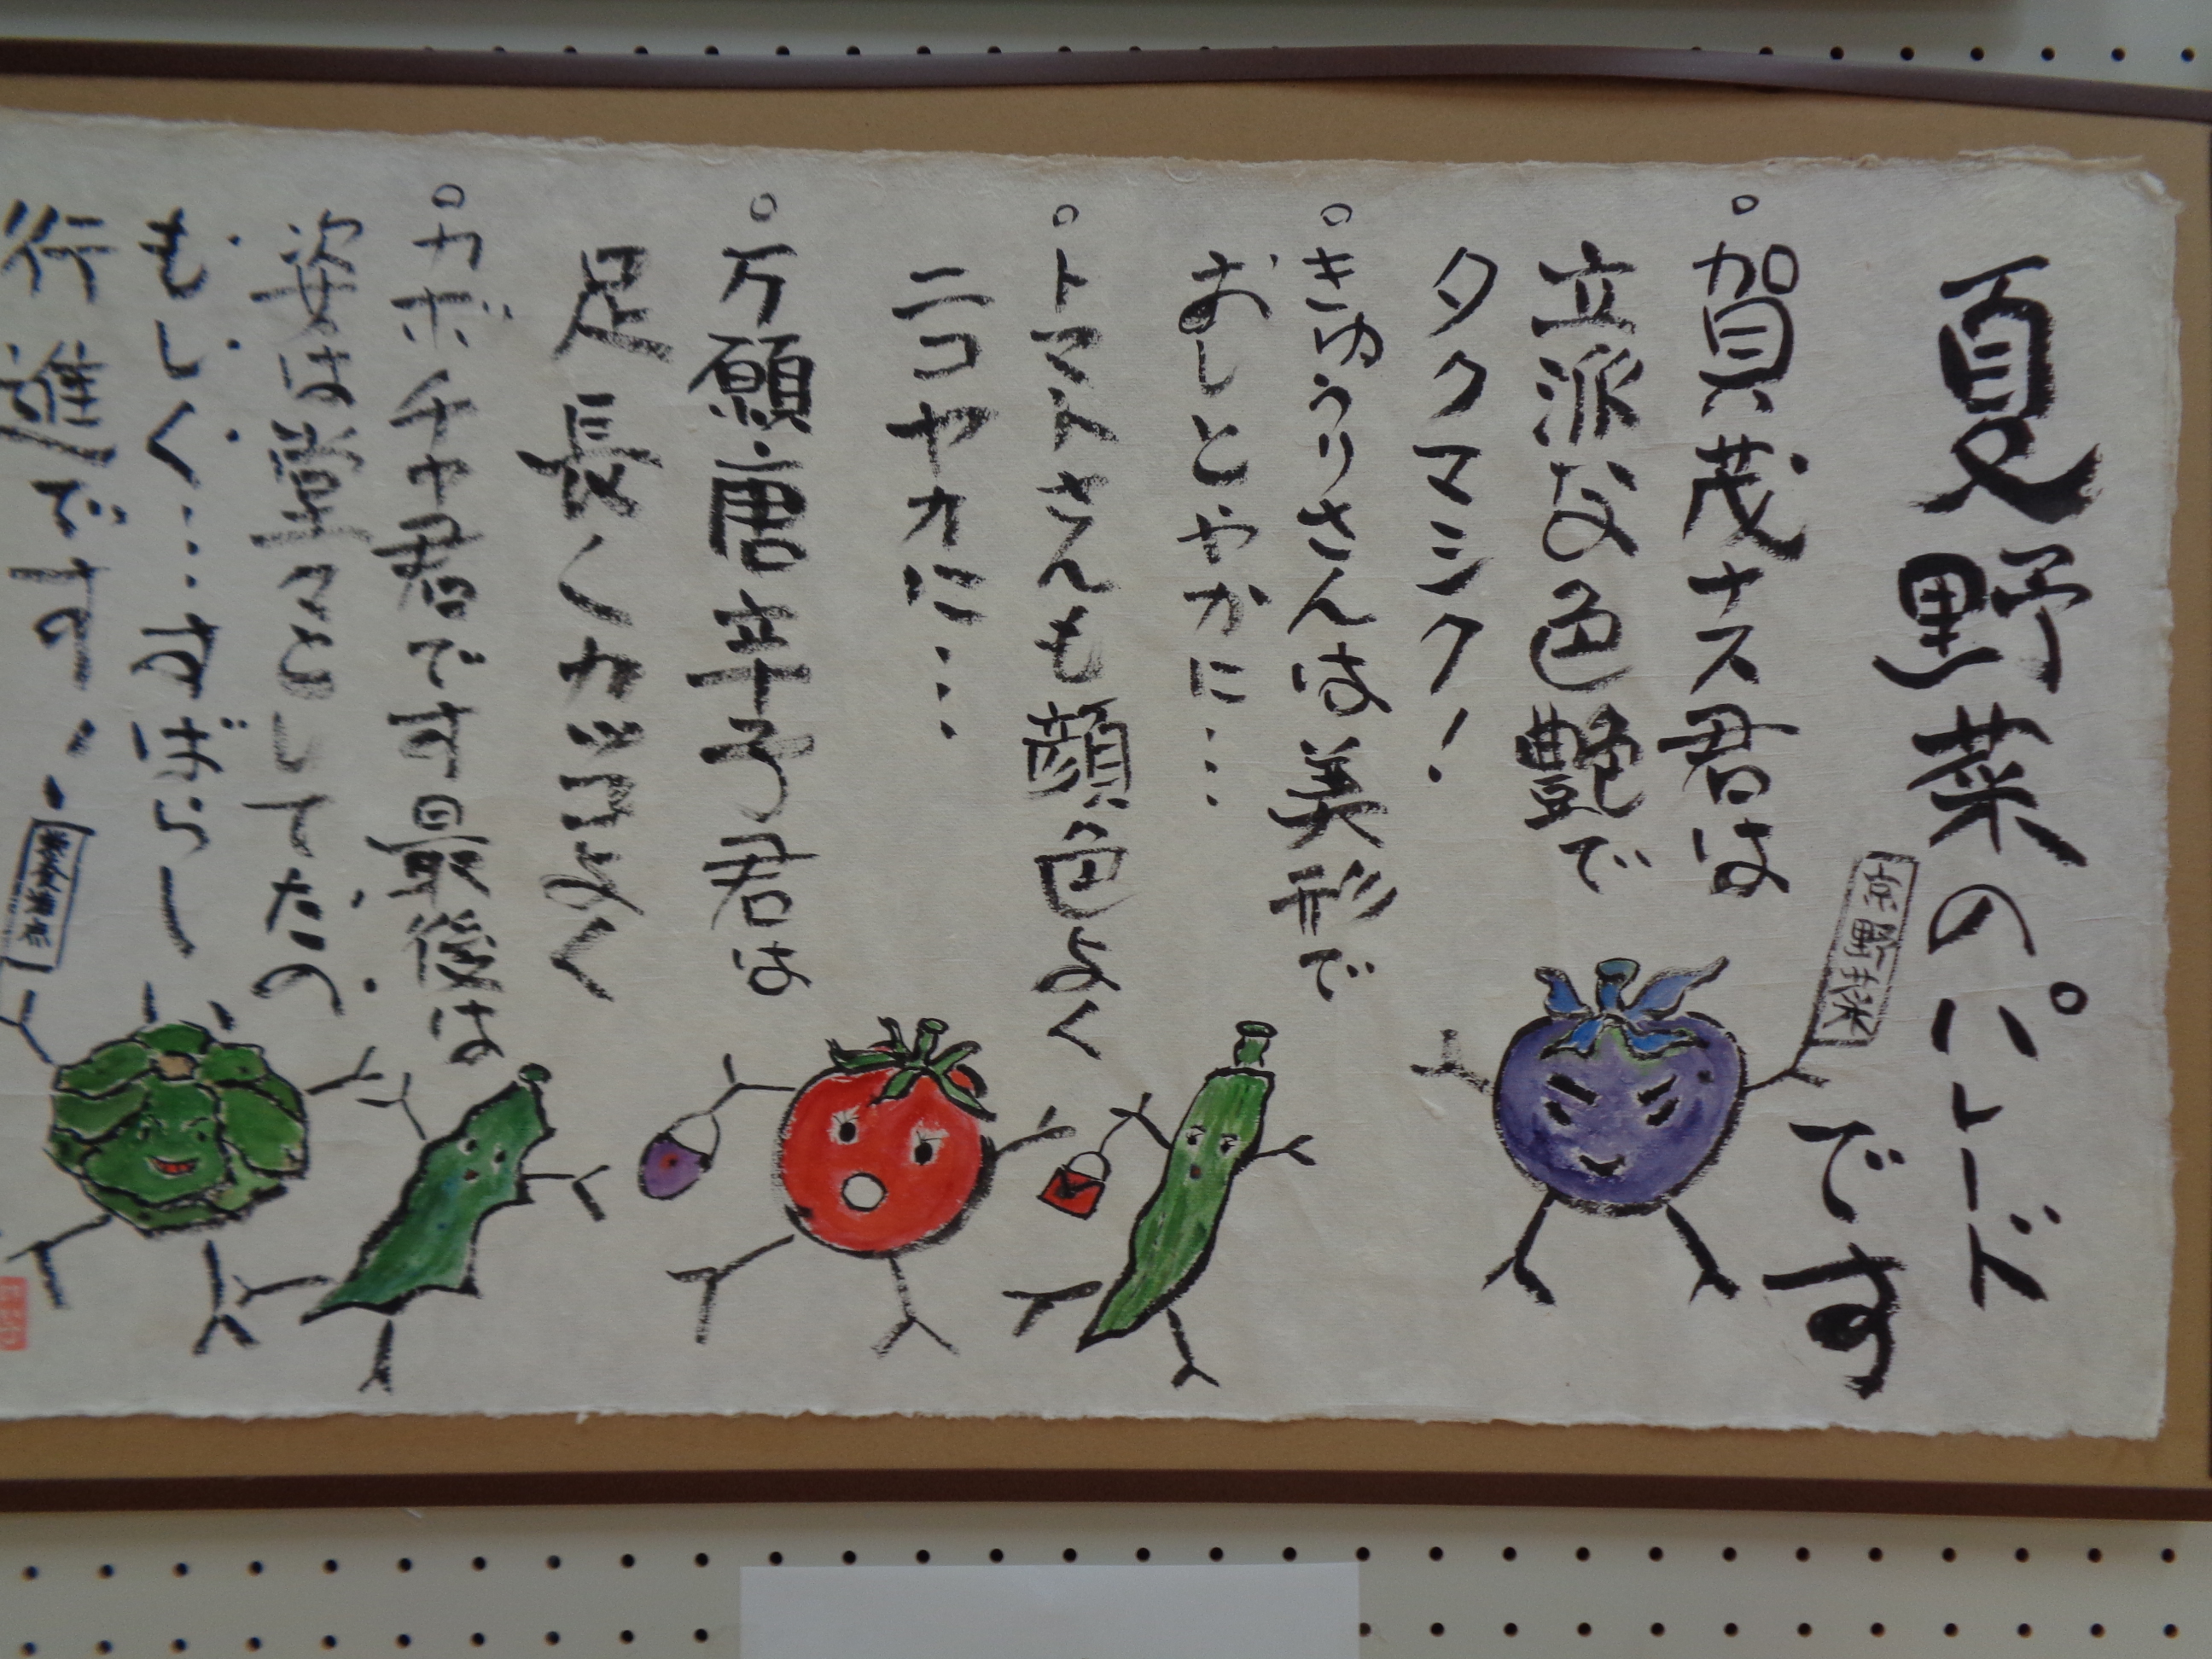 夏野菜のパレード
です
京野菜
。賀茂ナス君は
立派な色艶で
タクマシク!
。きゅうりさんは美形で
おしとやかに…
。トマトさんも顔色よく
ニコヤカに…
。万願唐辛子君は
足長くカッコよく
。カボチャ君です最後は
姿は堂々としてたの
もしく…すばらしー
行進です!